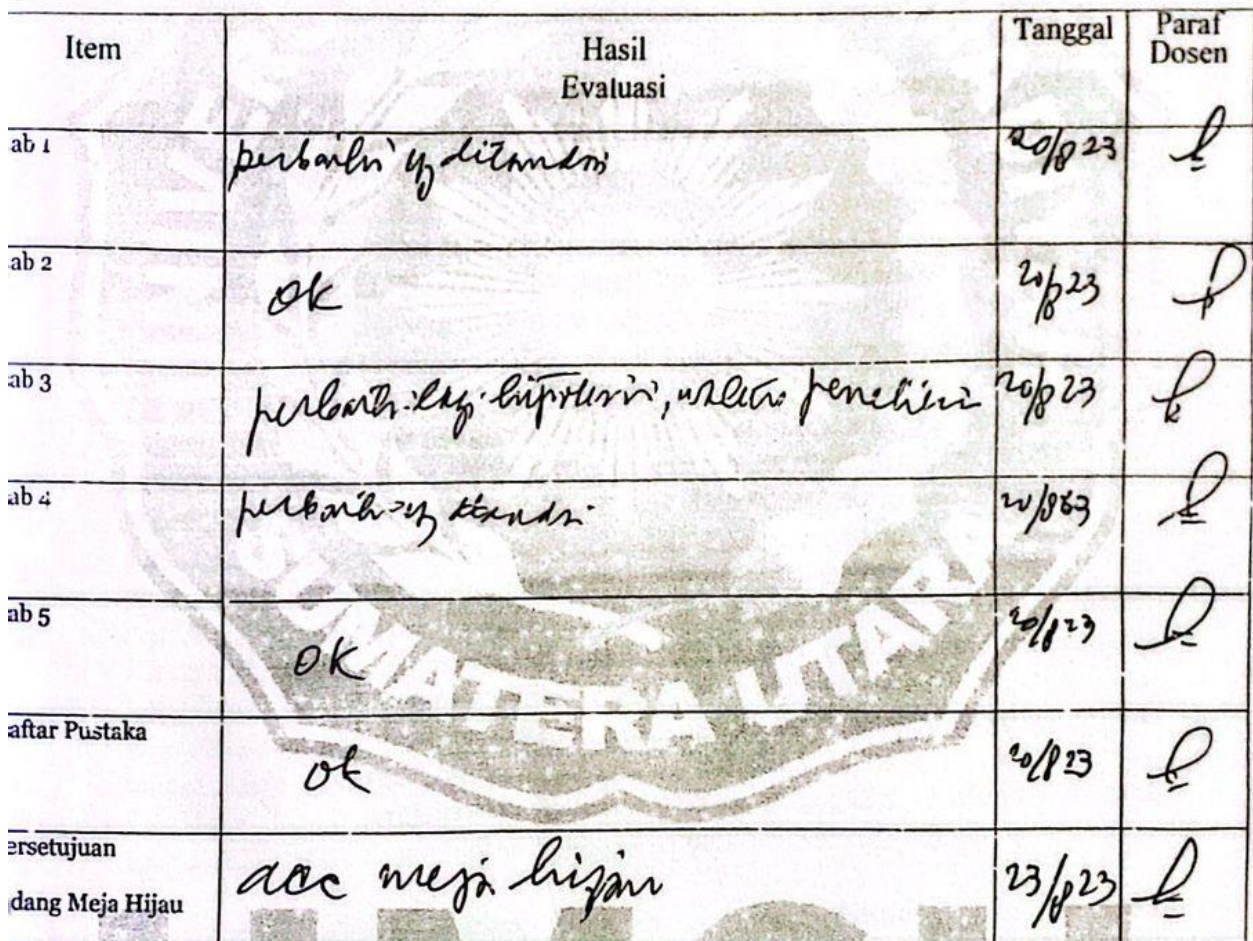 Item Hasil Evaluasi Tanggal Paraf Dosen
ab 1 perbaiki yg ditandai 20/8 23
ab 2 ok 20/8 23
ab 3 perbaiki lagi hipotesis, waktu penelitian 20/8 23
ab 4 perbaiki yg ditandai 20/8 23
ab 5 OK 20/8 23
aftar Pustaka ok 20/8 23
ersetujuan acc meja hijau 23/8 23
dang Meja Hijau
SUMATERA UTARA